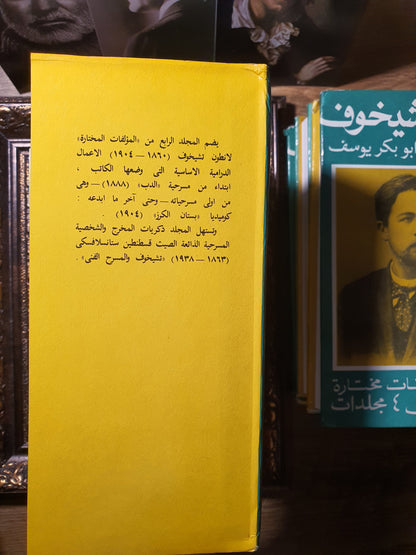 يضم المجلد الرابع من «المؤلفات المختارة»
لانطون تشيخوف (١٨٦٠ — ١٩٠٤) الاعمال
الدرامية الاساسية التى وضعها الكاتب ،
ابتداء من مسرحية «الدب» (١٨٨٨) — وهى
من اولى مسرحياته — وحتى آخر ما ابدعه :
كوميديا «بستان الكرز» (١٩٠٤) .
وتستهل المجلد ذكريات المخرج والشخصية
المسرحية الذائعة الصيت قسطنطين ستانسلافسكى
(١٨٦٣ — ١٩٣٨) «تشيخوف والمسرح الفنى» .
شيخوف
بو بكر يوسف
مختارة
٤ مجلدات